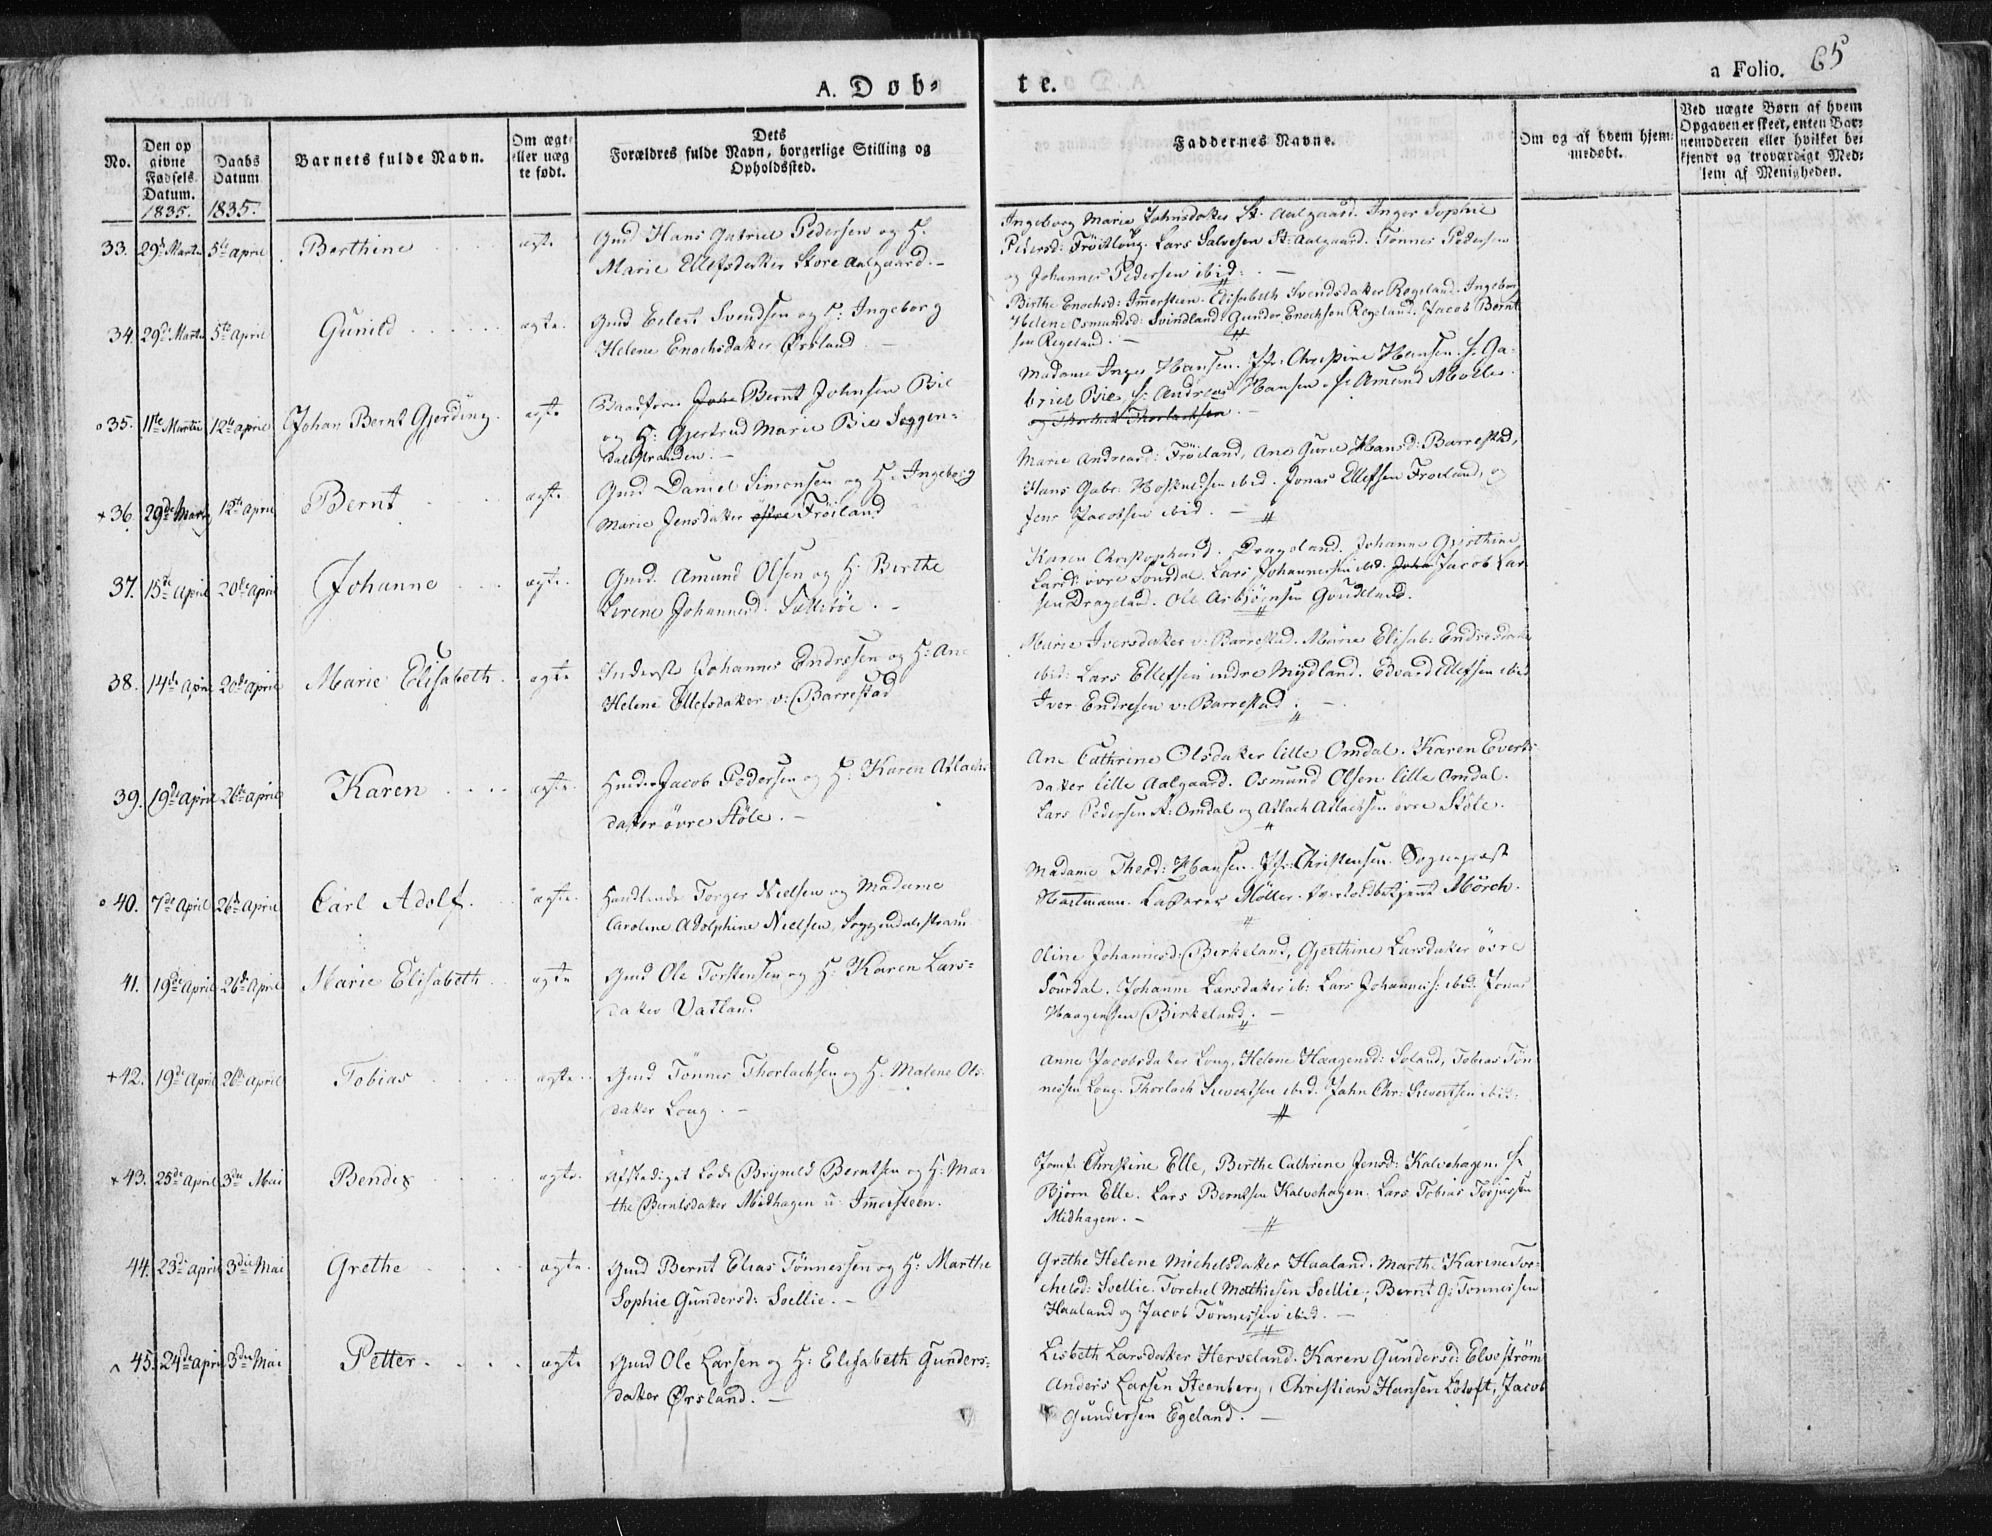 A. Døb-
te.
a Folio. 65
No.
Den op
givne
Fødsels
Datum.
1835.
Daabs
Datum
1835.
Barnets fulde Navn.
Om ægte
eller uæg
te født.
Dets
Forældres fulde Navn, borgerlige Stilling og
Opholdssted.
Faddernes Navne.
Om og af hvem hjem-
medøbt.
Ved uægte Børn af hvem
Opgaven er skeet, enten Bar-
nemoderen eller hvilket be-
kjendt og troværdigt Med-
lem af Menigheden.
33. 29de Martii 5te April Berthine ægte
Gmd Hans Gabriel Pedersen og H.
Marie Ellefsdatter Store Aalgaard. -
Ingeborg Marie Johnsdatter St. Aalgaard. Inger Sophie
Pedersd: Fröitlong. Lars Salvesen St: Aalgaard. Tönnes Pedersen
og Johannes Pedersen ibid:
34. 29de Martii 5te April Gunild ægte.
Gmd Eilert Svendsen og H. Ingeborg
Helene Enochsdatter Örsland
Birthe Enochsd: Imersteen. Elisabeth Svendsdatter Regeland. Ingeborg
Helene Osmundsd: Svindland. Gunder Enochsen Regeland. Jacob Bernt
sen Regeland. -
35. 11te Martii 12te April Johan Bernt Gjerding. ægte
Baadförer John Bernt Johnsen Bie
og H: Gjertrud Marie Bie Soggen-
dalsstranden. -
Madame Inger Hansen. Jfr: Christine Hansen. H. Ga-
briel Bie, H. Andreas Hansen, H. Amund Möller.
og Thorlachsen
36. 29de Marti 12te April Bernt ægte
Gmd Daniel Simonsen og H. Ingeborg
Marie Jensdatter östre Fröiland
Marie Andreasd: Fröiland, Ane Gurie Hansd: Barrestad,
Hans Gabr. Hoskuldsen ibid. Jonas Ellefsen Froiland, og
Jens Jacobsen ibid. -
37. 15de April 20de April Johanne ægte.
Gmd. Amund Olsen og H: Berthe
Serene Johannesd. Sætteröe. -
Karen Christophersd. Drageland. Johanne Gjerthine
Larsd: övre Sourdal. Lars Johannessen ibid. John Jacob Lar-
sen Drageland. Ole Asbjörnsen Goudeland.
38. 14de April 20de April Marie Elisabeth. ægte
Inderste Johannes Endresen og H: Ane
Helene Ellefsdatter v: Barrestad
Marie Iversdatter v: Barrestad. Marie Elisab: Endresdatter
ibid: Lars Ellefsen indre Mydland. Edvard Ellefsen ibid
Iver Endresen v: Barrestad. -
39. 19de April 26de April Karen ægte.
Jacob Pedersen og H: Karen Atlachs
datter övre Stöle. -
Ane Cathrine Olsdatter lille Omdal. Karen Everts
datter lille Aalgaard. Osmund Olsen lille Omdal.
Lars Pedersen st: Omdal og Atlach Atlachsen övre Stöle.
40. 7de April 26de April Carl Adolf. ægte.
Handlende Torger Nielsen og Madame
Caroline Adolphine Nielsen, Soggendalsstrand
Madame Theod: Hansen. Jfr: Christensen. Sognepræst
Hartmann. Lazarus Möller. Overtoldbetjent Mörch.
41. 19de April 26de April Marie Elisabeth. ægte
Gmd Ole Torstensen og H: Karen Lars-
datter Vatland
Oline Johannesd: Birkeland, Gjerthine Larsdatter övre
Sourdal. Johanne Larsdatter ib: Lars Johanness: ibid. Jonas
Haagensen Birkeland. -
+42. 19de April 26de April Tobias ægte
Gmd Tönnes Thorlachsen og H. Malene Ols
datter Long. -
Anne Jacobsdatter Long, Helene Haagensd: Soland, Tobias Tön-
nessen Long. Thorlach Sivertsen ibid. John Chr: Sivertsen ibid:
+43. 25de April 3die Mai Bendix ægte.
Afskediget Lods Brynild Berntsen og H: Mar
the Berntsdatter Midhagen u: Imersteen.
Jomf: Christine Elle, Berthe Cathrine Jensd: Kalvehagen. H.
Björn Elle. Lars Berntsen Kalvehagen. Lars Tobias Torjussen
Midhagen. -
44. 23de April 3die Mai Grethe ægte.
Gmd Bernt Elias Tönnessen og H: Marthe
Sophie Gundersd: Soellie. -
Grethe Helene Michelsdatter Haaland. Marthe Karine Tor-
chelsd: Soellie. Torchel Mathiesen Soellie; Bernt G: Tonnessen
Haaland og Jacob Tönnessen ibid. -
45. 24de April 3die Mai Petter. ægte
Gmd Ole Larsen og H: Elisabeth Gunders-
datter Ørsland. -
Lisbeth Larsdatter Herveland. Karen Gundersd: Elveström
Anders Larsen Steenberg, Christian Hansen Lötoft, Jacob
Gundersen Egeland. -